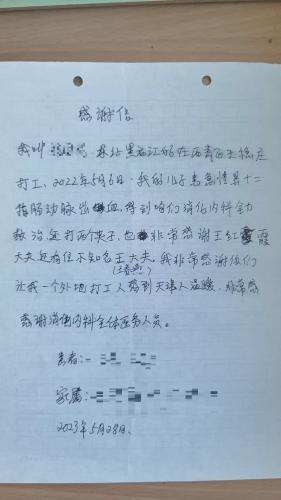 感谢信
我叫 来于黑龙江的在西青区王稳庄
打工，2022年5月6日．我的儿子患急性胃十二
指肠动脉出血，得到咱们消化内科全力
救治 打两个夹子，也非常感谢王红霞
大夫还有位不知名王大夫。我非常感谢他们
让我一个外地打工人感到天津人温暖．非常感
感谢消化内科全体医务人员。
患者：
家属：
2023年5月28日．